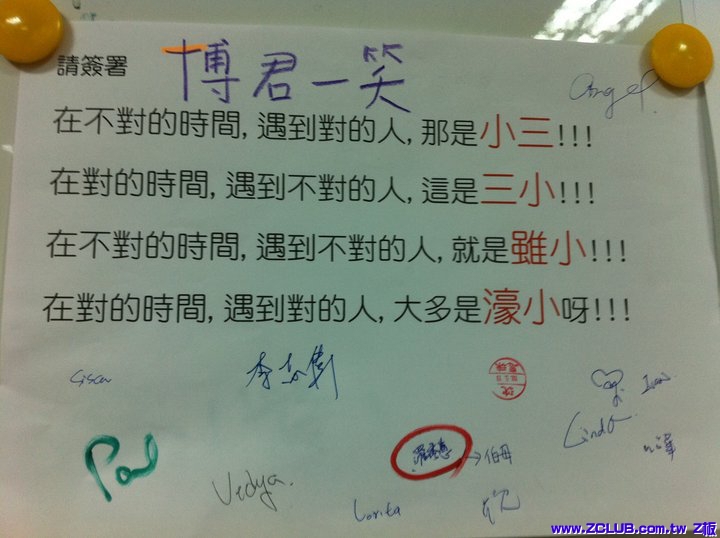 請簽署 博君一笑
Angel
在不對的時間,遇到對的人,那是小三!!!
在對的時間,遇到不對的人,這是三小!!!
在不對的時間,遇到不對的人,就是雖小!!!
在對的時間,遇到對的人,大多是濠小呀!!!
Linda
Paul
Vidya.
→伯母
Lorita
www.ZCLUB.com.tw Z板